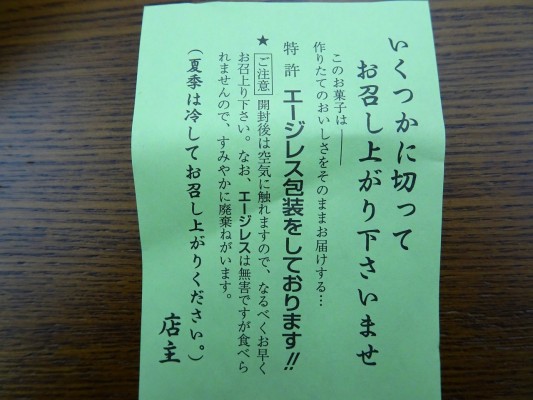 いくつかに切って
お召し上がり下さいませ
このお菓子は———
作りたてのおいしさをそのままお届けする…
特許 エージレス包装をしております!!
★ ご注意 開封後は空気に触れますので、なるべくお早く
お召上り下さい。なお、エージレスは無害ですが食べら
れませんので、すみやかに廃棄ねがいます。
(夏季は冷してお召し上がりください。)
店主